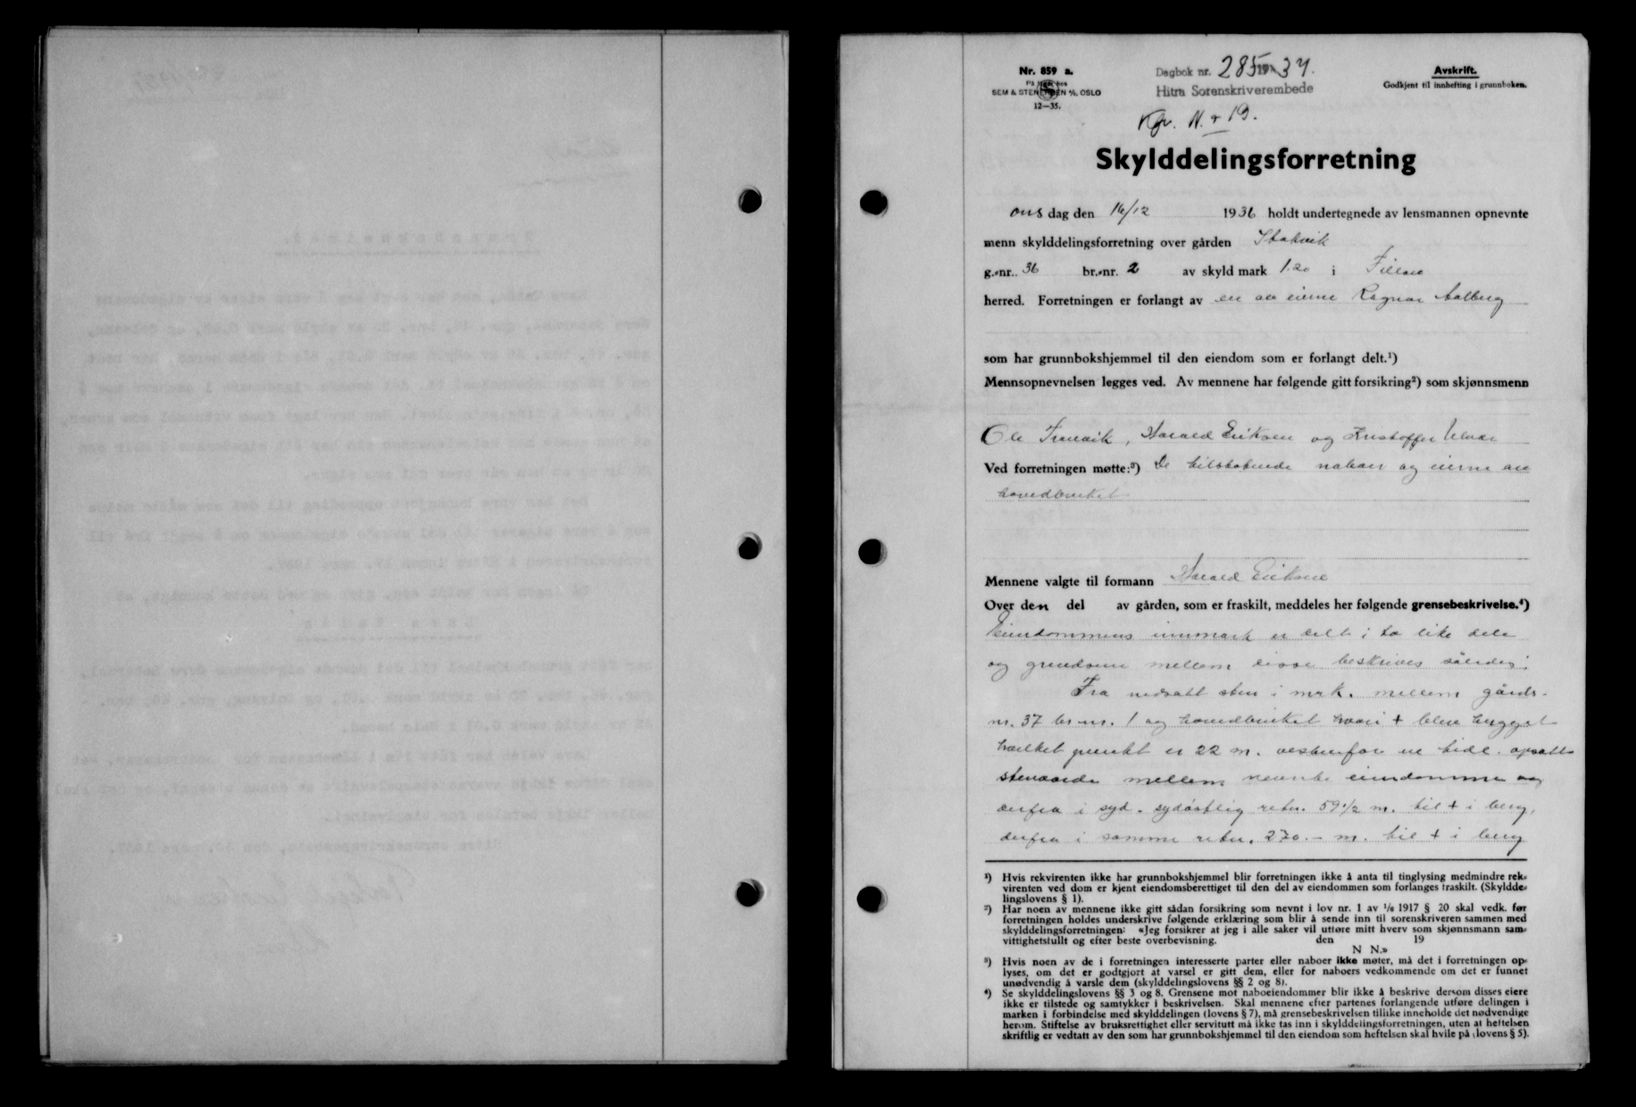 Nr. 859 a.
SEM & STENERSEN A/S, OSLO
12—35.
Dagbok nr. 285 1937.
Hitra Sorenskriverembede
Avskrift.
Godkjent til innhefting i grunnboken.
Nr 19.
Skylddelingsforretning
ons dag den 16/12 1936 holdt undertegnede av lensmannen opnevnte
menn skylddelingsforretning over gården Stakvik
g.-nr. 36 br.-nr. 2 av skyld mark 1.20 i Fillan
herred. Forretningen er forlangt av en av eierne Ragnar Aalberg
som har grunnbokshjemmel til den eiendom som er forlangt delt.¹)
Mennsopnevnelsen legges ved. Av mennene har følgende gitt forsikring²) som skjønnsmenn
Ole Hararld Eriksen og Kristoffer Ulvan
Ved forretningen møtte:³) De tilstøtende naboer og eierne av
hovedbruket
Mennene valgte til formann Harald Eriksen
Over den del av gården, som er fraskilt, meddeles her følgende grensebeskrivelse.⁴)
Eiendommens innmark er delt i to like dele
og grendsene mellem disse beskrives således:
Fra nedsatt sten i mrk. mellem gårds-
nr. 37 br.nr. 1 og hovedbruket hvori + blev hugget
hvilket punkt er 22 m. vestenfor en tidl. opsatt
stenvarde mellem nevnte eiendomme og
derfra i syd-sydøstlig retn. 59 1/2 m. til + i berg,
derfra i samme retn. 270.- m. til + i berg
¹) Hvis rekvirenten ikke har grunnbokshjemmel blir forretningen ikke å anta til tinglysing medmindre rek-
virenten ved dom er kjent eiendomsberettiget til den del av eiendommen som forlanges fraskilt. (Skyldde-
lingslovens § 1).
²) Har noen av mennene ikke gitt sådan forsikring som nevnt i lov nr. 1 av 1/6 1917 § 20 skal vedk. før
forretningen holdes underskrive følgende erklæring som blir å sende inn til sorenskriveren sammen med
skylddelingsforretningen: «Jeg forsikrer at jeg i alle saker vil utføre mitt hverv som skjønnsmann sam-
vittighetsfullt og efter beste overbevisning. den 19
N N.»
³) Hvis noen av de i forretningen interesserte parter eller naboer ikke møter, må det i forretningen op-
lyses, om det er godtgjort at varsel er gitt dem, eller for naboers vedkommende om det er funnet
unødvendig å varsle dem (skylddelingslovens §§ 2 og 8).
⁴) Se skylddelingslovens §§ 3 og 8. Grensene mot naboeiendommer blir ikke å beskrive dersom disses eiere
ikke er tilstede og samtykker i beskrivelsen. Skal mennene efter partenes forlangende utføre delingen i
marken i forbindelse med skylddelingen (lovens § 7), må grensebeskrivelsen tillike inneholde det nødvendige
herom. Stiftelse av bruksrettighet eller servitutt må ikke tas inn i skylddelingsforretningen, uten at heftelsen
skriftlig er vedtatt av den som har grunnbokshjemmel til den eiendom som heftelsen skal hvile på (lovens § 5).